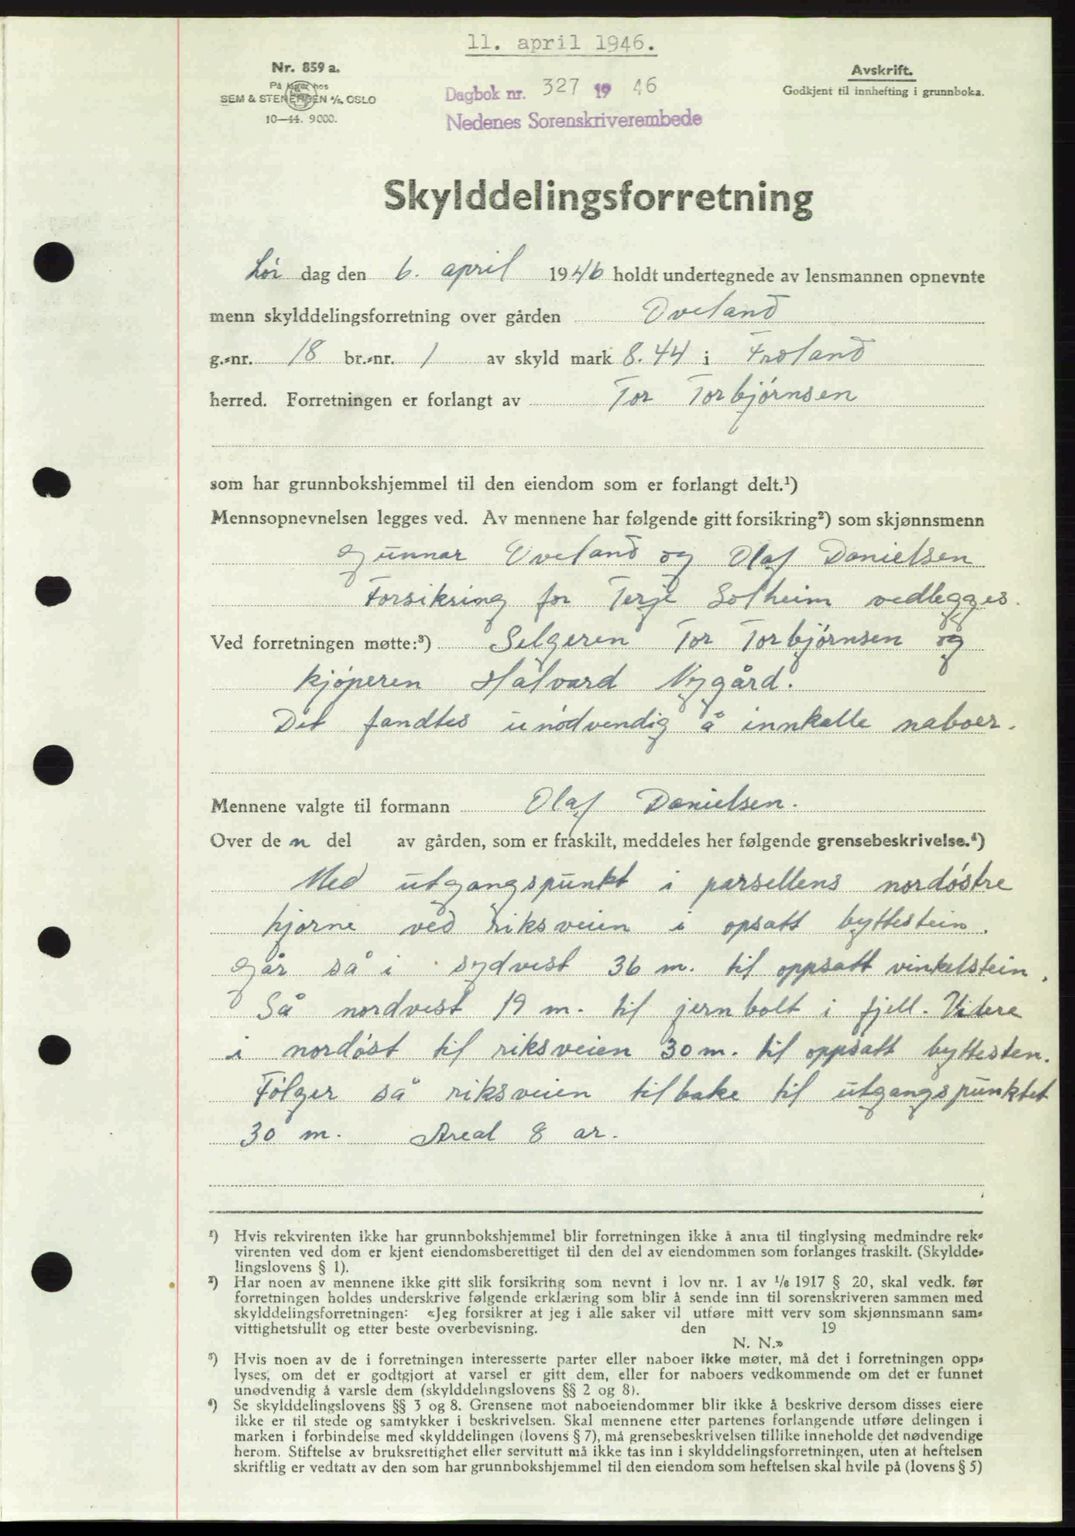 11. april 1946.
Nr. 859 a.
På lager hos
SEM & STENERSEN A/S, OSLO
10—44. 9000.
Dagbok nr. 327 1946
Nedenes Sorenskriverembede
Avskrift.
Godkjent til innhefting i grunnboka.
Skylddelingsforretning
Lør dag den 6. april 1946 holdt undertegnede av lensmannen opnevnte
menn skylddelingsforretning over gården Oveland
g.-nr. 18 br.-nr. 1 av skyld mark 8.44 i Froland
herred. Forretningen er forlangt av Tor Torbjørnsen
som har grunnbokshjemmel til den eiendom som er forlangt delt.¹)
Mennsopnevnelsen legges ved. Av mennene har følgende gitt forsikring²) som skjønnsmenn
Gunnar Oveland og Olaf Danielsen
Forsikring for Terje Solheim vedlegges.
Ved forretningen møtte:³) Selgeren Tor Torbjørnsen og
kjøperen Halvard Nygård.
Det fandtes unødvendig å innkalle naboer.
Mennene valgte til formann Olaf Danielsen.
Over den del av gården, som er fraskilt, meddeles her følgende grensebeskrivelse.⁴)
Med utgangspunkt i parsellens nordøstre
hjørne ved riksveien i opsatt byttestein.
Går så i sydvest 36 m. til oppsatt vinkelstein.
Så nordvest 19 m. til jernbolt i fjell. Videre
i nordøst til riksveien 30 m. til oppsatt byttesten.
Følger så riksveien tilbake til utgangspunktet
30 m. Areal 8 ar.
¹) Hvis rekvirenten ikke har grunnbokshjemmel blir forretningen ikke å anta til tinglysing medmindre rek-
virenten ved dom er kjent eiendomsberettiget til den del av eiendommen som forlanges fraskilt. (Skyldde-
lingslovens § 1).
²) Har noen av mennene ikke gitt slik forsikring som nevnt i lov nr. 1 av ¹/₈ 1917 § 20, skal vedk. før
forretningen holdes underskrive følgende erklæring som blir å sende inn til sorenskriveren sammen med
skylddelingsforretningen: «Jeg forsikrer at jeg i alle saker vil utføre mitt verv som skjønnsmann sam-
vittighetsfullt og etter beste overbevisning. den 19
N. N.»
³) Hvis noen av de i forretningen interesserte parter eller naboer ikke møter, må det i forretningen opp-
lyses, om det er godtgjort at varsel er gitt dem, eller for naboers vedkommende om det er funnet
unødvendig å varsle dem (skylddelingslovens §§ 2 og 8).
⁴) Se skylddelingslovens §§ 3 og 8. Grensene mot naboeiendommer blir ikke å beskrive dersom disses eiere
ikke er til stede og samtykker i beskrivelsen. Skal mennene etter partenes forlangende utføre delingen i
marken i forbindelse med skylddelingen (lovens § 7), må grensebeskrivelsen tillike inneholde det nødvendige
herom. Stiftelse av bruksrettighet eller servitutt må ikke tas inn i skylddelingsforretningen, uten at heftelsen
skriftlig er vedtatt av den som har grunnbokshjemmel til den eiendom som heftelsen skal hvile på (lovens § 5)